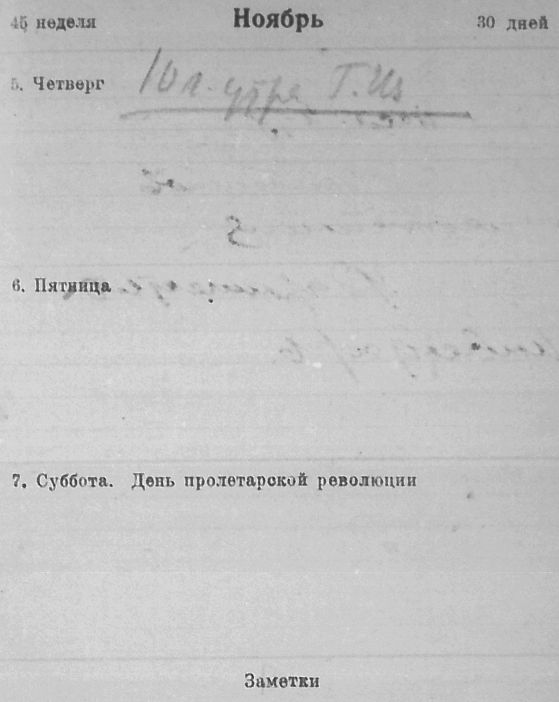 45 неделя Ноябрь 30 дней
5. Четверг 10 ч. утра Т. Из
6. Пятница
7. Суббота. День пролетарской революции
Заметки